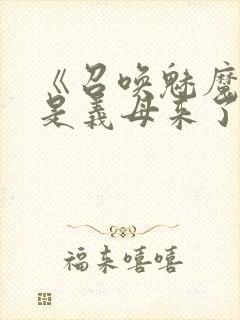 《召唤魅魔
是义母来了
福来嘻嘻